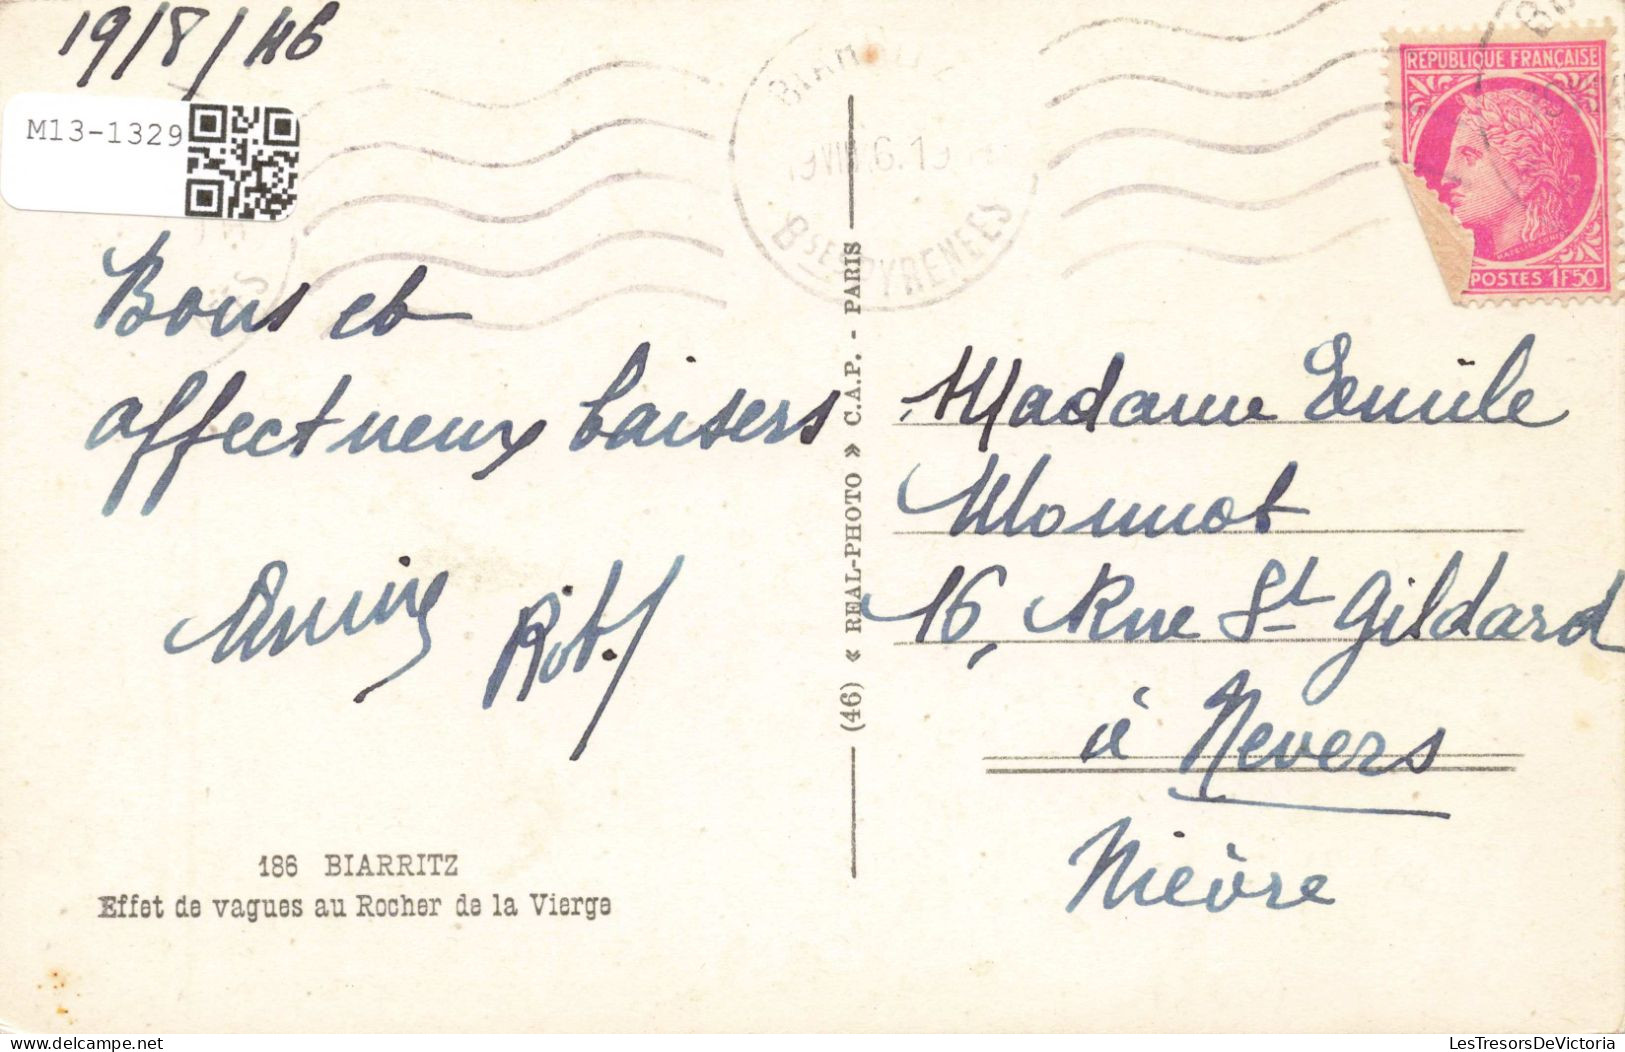 19/8/46
M13-1329
Bons et
affectueux baisers
186 BIARRITZ
Effet de vagues au Rocher de la Vierge
(46) « REAL-PHOTO » C.A.P. - PARIS
BIARRITZ
Bses PYRENEES
REPUBLIQUE FRANÇAISE
POSTES 1F50
Madame Emile
Monnot
16, Rue St Gildard
à Nevers
Nièvre
LesTresorsDeVictoria